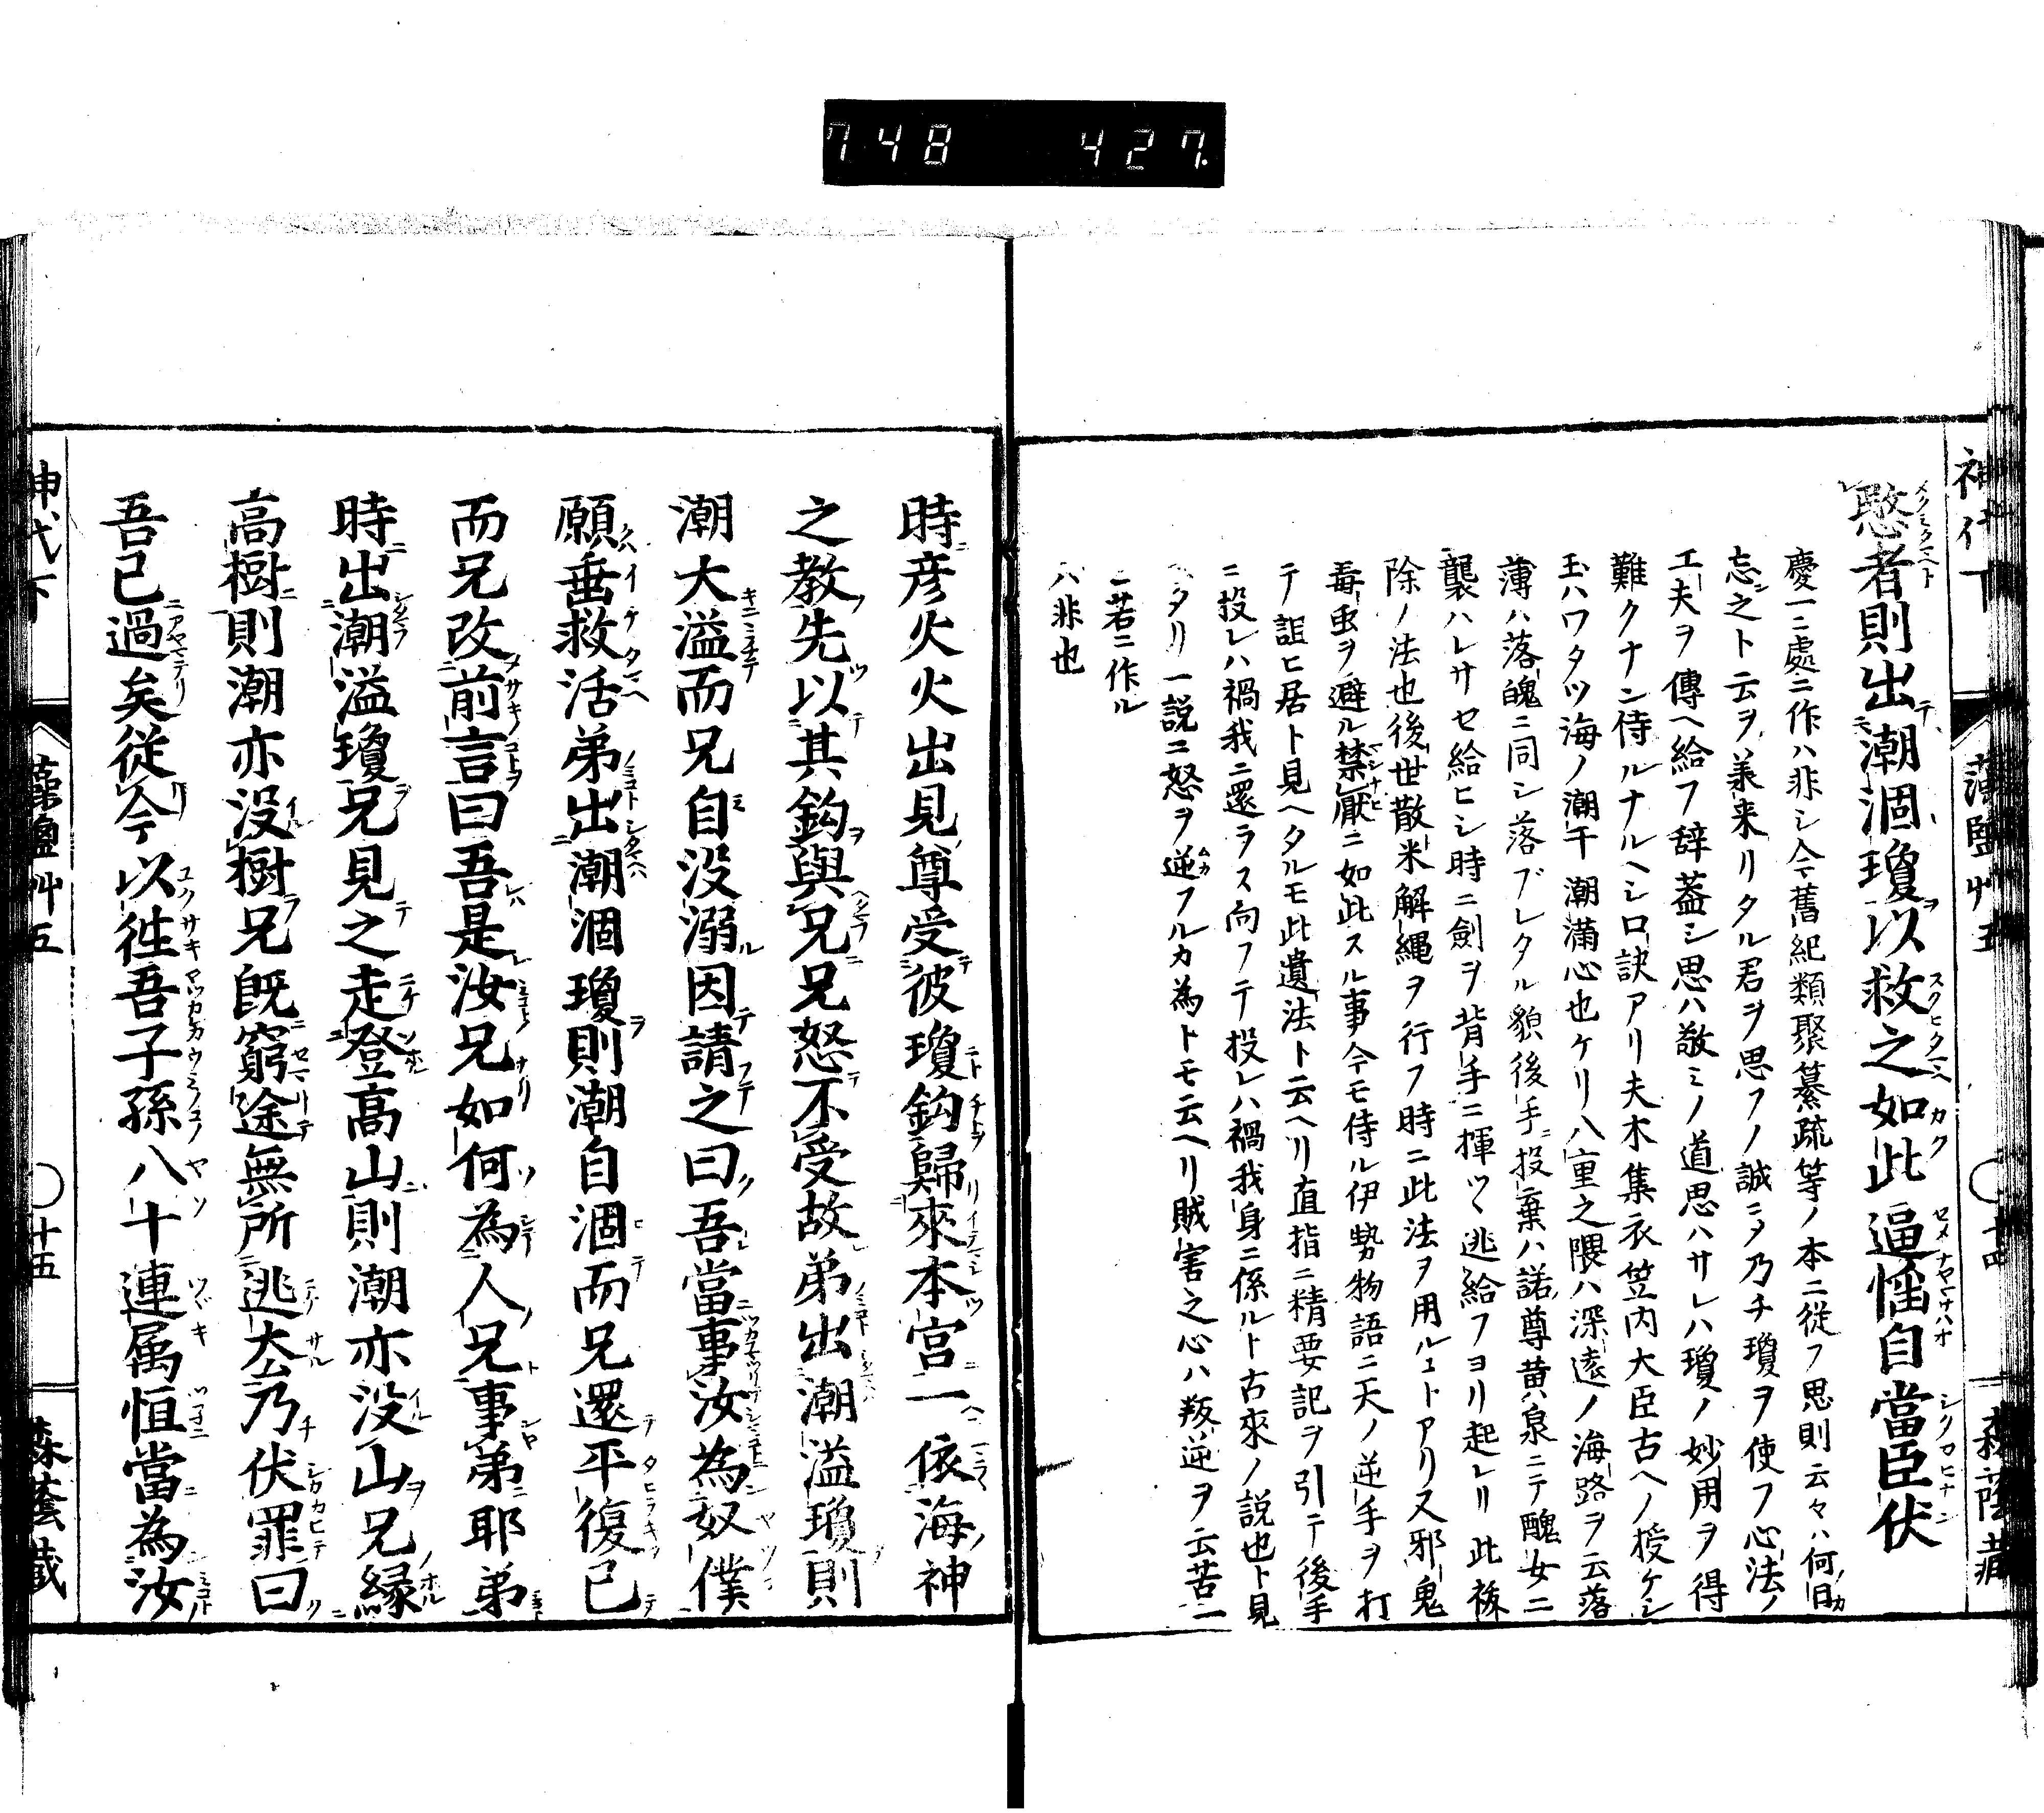 748 427.
神代下 藻鹽艸五 〇十四 森蔭蔵
愍者則出潮涸瓊以救之如此逼惱自當臣伏
慶一ニ處ニ作ハ非シ今舊紀類聚纂疏等ノ本ニ従フ思則云々ハ何ノ日カ
忘之ト云ヲ兼来リタル君ヲ思フノ誠ニメ乃チ瓊ヲ使フ心法ノ
工夫ヲ傳ヘ給フ辞葢シ思ハ敬ミノ道思ハサレハ瓊ノ妙用ヲ得
難クナン侍ルナルヘシ口訣アリ夫木集衣笠内大臣古ヘノ授ケシ
玉ハワタツ海ノ潮干潮滿心也ケリ八重之隈ハ深遠ノ海路ヲ云落
薄ハ落魄ニ同シ落ブレタル貌後手投棄ハ諾尊黄泉ニテ醜女ニ
襲ハレサセ給ヒシ時ニ劍ヲ背手ニ揮ツヽ逃給フヨリ起レリ此祓
除ノ法也後世散米解縄ヲ行フ時ニ此法ヲ用ルヿトアリ又邪鬼
毒虫ヲ避ル禁厭ニ如此スル事今モ侍ル伊勢物語ニ天ノ逆手ヲ打
テ詛ヒ居ト見ヘタルモ此遺法ト云ヘリ直指ニ精要記ヲ引テ後手
ニ投レハ禍我ニ還ラス向フテ投レハ禍我身ニ係ルト古來ノ説也ト見
ヘタリ一説ニ怒ヲ逆フルカ為トモ云ヘリ賊害之心ハ叛逆ヲ云苦一
ニ若ニ作ル
ハ非也
時彦火火出見尊受彼瓊鈎歸來本宮一依海神
之教先以其鈎與兄兄怒不受故弟出潮溢瓊則
潮大溢而兄自没溺因請之曰吾當事汝為奴僕
願垂救活弟出潮涸瓊則潮自涸而兄還平復已
而兄改前言曰吾是汝兄如何為人兄事弟耶弟
時出潮溢瓊兄見之走登高山則潮亦没山兄縁
高樹則潮亦没樹兄既窮途無所逃去乃伏罪曰
吾已過矣従今以徃吾子孫八十連属恒當為汝
神代下 藻鹽艸五 〇十五 森蔭蔵